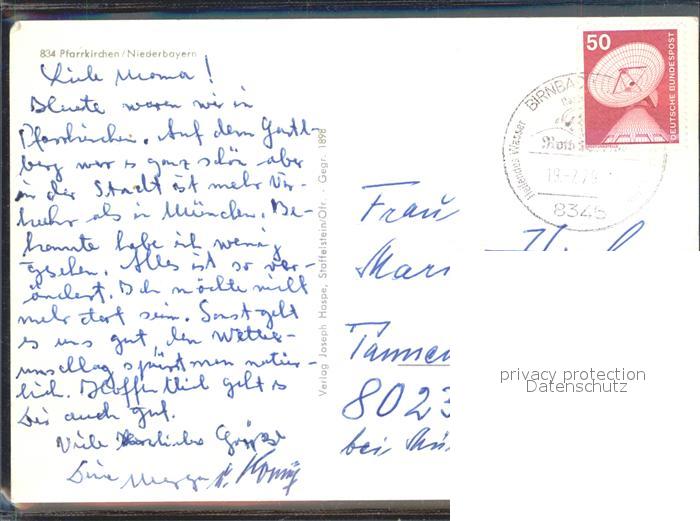 834 Pfarrkirchen/Niederbayern
Liebe Mama!
Heute waren wir in
Pfarrkirchen. Auf dem Gartl-
berg war es ganz schön aber
in der Stadt ist mehr Ver-
kehr als in München. Be-
kannte habe ich wenig
gesehen. Alles ist so ver-
ändert. Ich möchte nicht
mehr dort sein. Sonst geht
es uns gut, den Wetter-
umschlag spürt man natür-
lich. Hoffentlich geht es
Dir auch gut.
Viele herzliche Grüße
Deine
Verlag Joseph Haspe, Staffelstein/Ofr. · Gegr. 1898
50
DEUTSCHE BUNDESPOST
BIRNBA
Heilendes Wasser
8345
Frau
Mari
Tannen
8023
bei
privacy protection
Datenschutz